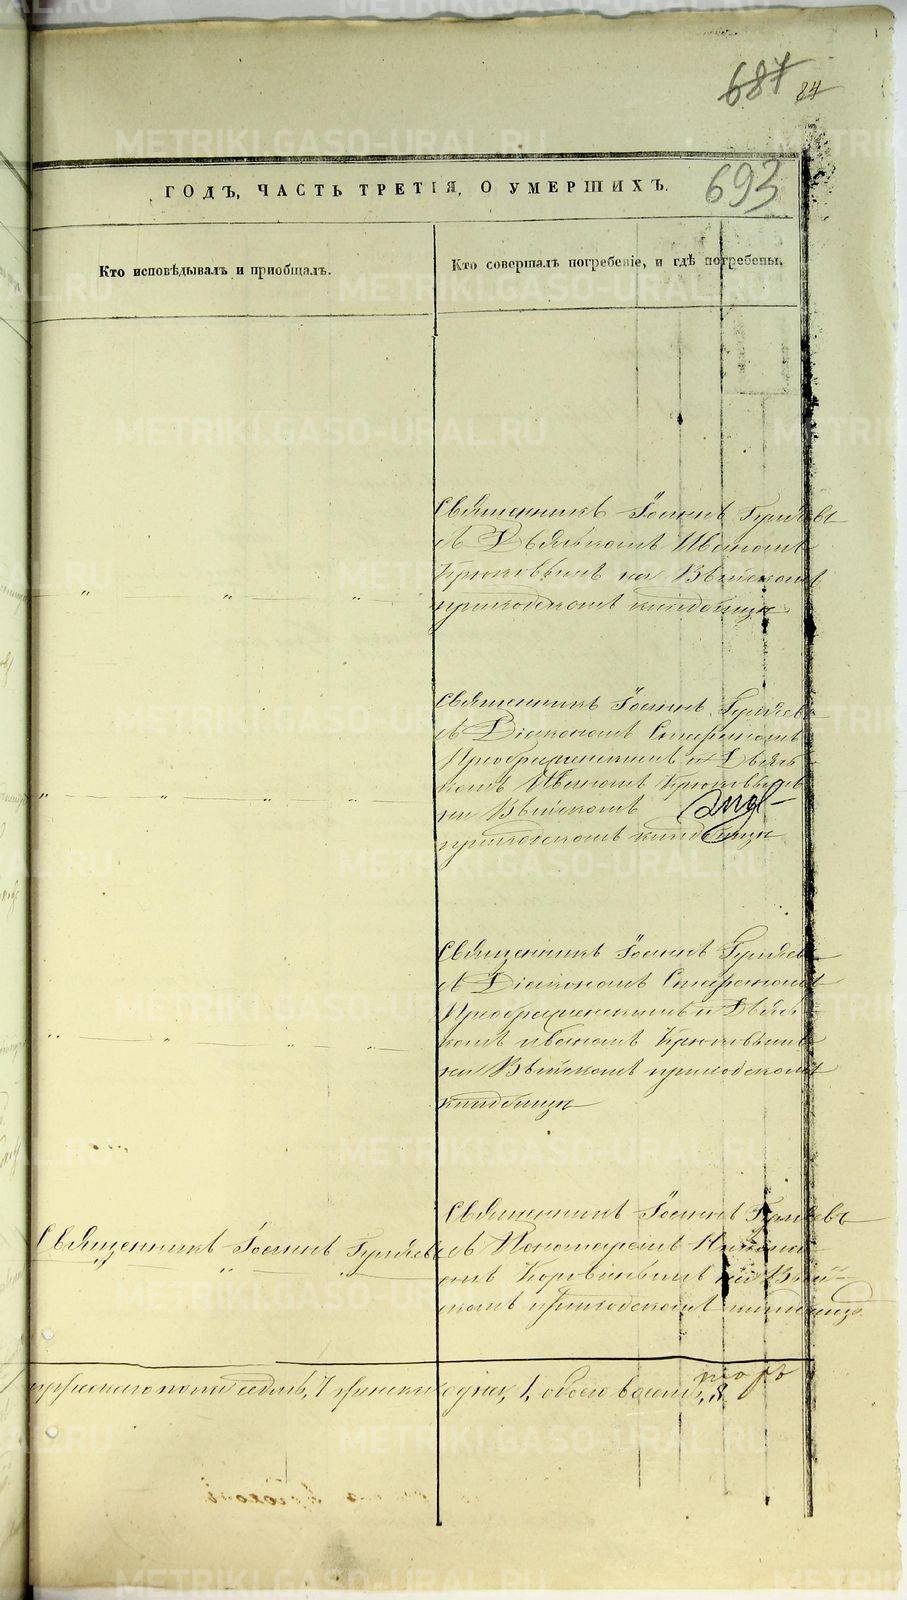 687 84
693
ГОДЪ, ЧАСТЬ ТРЕТІЯ, О УМЕРШИХЪ.
Кто исповѣдывалъ и пріобщалъ.
Кто совершалъ погребеніе, и гдѣ погребены.
Священникъ Іоаннъ Гуляевъ
съ Дьячкомъ Иваномъ
Крюковымъ на Выйскомъ
приходскомъ кладбищѣ
Священникъ Іоаннъ Гуляевъ
съ Діакономъ Стефаномъ
Преображенскимъ и Дьяч-
комъ Иваномъ Крюковымъ
на Выйскомъ
приходскомъ кладбищѣ
Священникъ Іоаннъ Гуляевъ
съ Діакономъ Стефаномъ
Преображенскимъ и Дьяч-
комъ Иваномъ Крюковымъ
на Выйскомъ приходскомъ
кладбищѣ
Священникъ Іоаннъ Гуляевъ
Священникъ Іоаннъ Гуляевъ
съ Пономаремъ
Коровинымъ на Вый-
скомъ приходскомъ кладбищѣ
мужескаго пола семь, 7 женскаго одна, 1, обоего восемь, 8.
METRIKI.GASO-URAL.RU